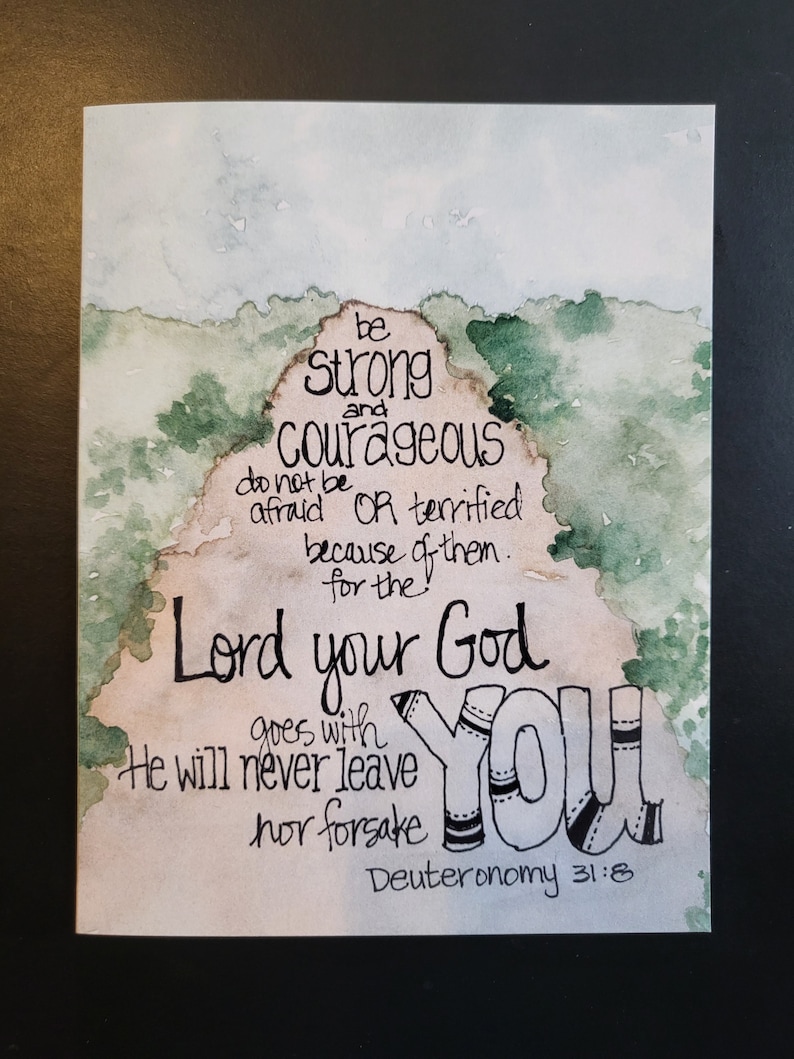 be
strong
and
courageous
do not be
afraid OR terrified
because of them.
for the
Lord your God
goes with YOU
He will never leave
nor forsake
Deuteronomy 31:8